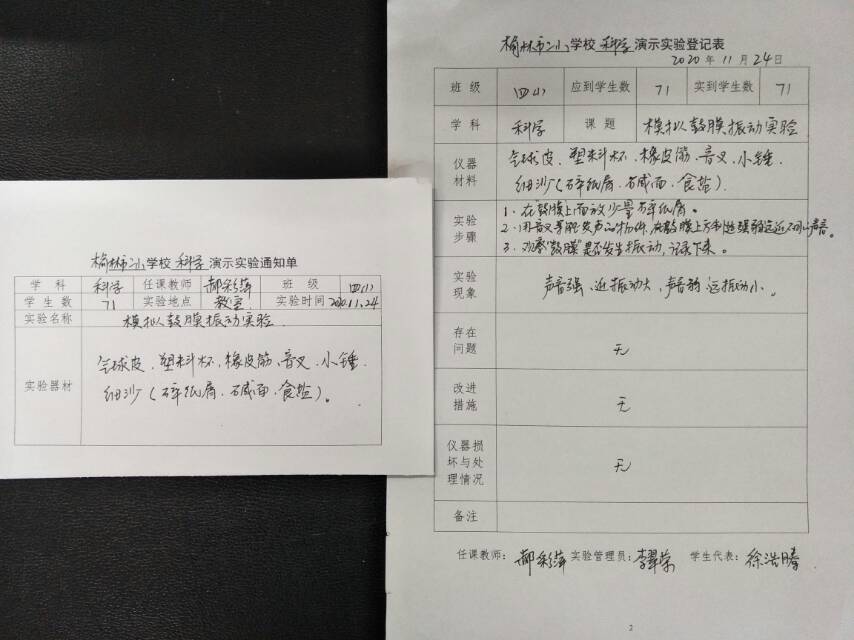 榆林市二小学校 科学 演示实验通知单
学科 科学 任课教师 郝彩萍 班级 四(1)
学生数 71 实验地点 教室 实验时间 2020.11.24
实验名称 模拟鼓膜振动实验
实验器材 气球皮、塑料杯、橡皮筋、音叉、小锤、
细沙(碎纸屑、碱面、食盐)。
榆林市二小学校 科学 演示实验登记表
2020年11月24日
班级 四(1) 应到学生数 71 实到学生数 71
学科 科学 课题 模拟鼓膜振动实验
仪器材料 气球皮、塑料杯、橡皮筋、音叉、小锤、
细沙(碎纸屑、碱面、食盐)
实验步骤 1、在"鼓膜"上面放少量碎纸屑。
2、用音叉等能发声的物体,在鼓膜上方制造强弱远近不同的声音。
3、观察"鼓膜"是否发生振动,记录下来。
实验现象 声音强、近振动大,声音弱、远振动小。
存在问题 无
改进措施 无
仪器损坏与处理情况 无
备注
任课教师:郝彩萍 实验管理员:李翠荣 学生代表:徐浩腾
2